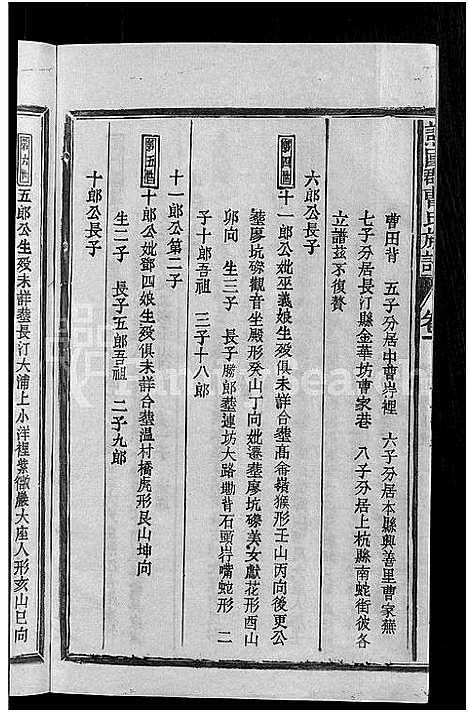 譙國郡曹氏族譜 卷一
曹田背 五子分居中曹岃裡 六子分居本縣興善里曹家蕪
七子分居長汀縣金華坊曹家巷 八子分居上杭縣南蛇街彼各
立譜茲不復贅
六郎公長子
第四世
十一郎公妣巫義娘生歿俱未詳合塟髙畬嶺猴形壬山丙向後更公
塟廖坑磜觀音坐殿形癸山丁向妣遷塟廖坑磜美女獻花形酉山
卯向 生三子 長子勝郎塟連坊大路墈背石頭岃嘴蛇形 二
子十郎吾祖 三子十八郎
十一郎公第二子
第五世
十郎公妣鄧四娘生歿俱未詳合塟溫村橋虎形艮山坤向
生二子 長子五郎吾祖 二子九郎
十郎公長子
第六世
五郎公生歿未詳塟長汀大浦上小洋裡紫微巖大座人形亥山巳向